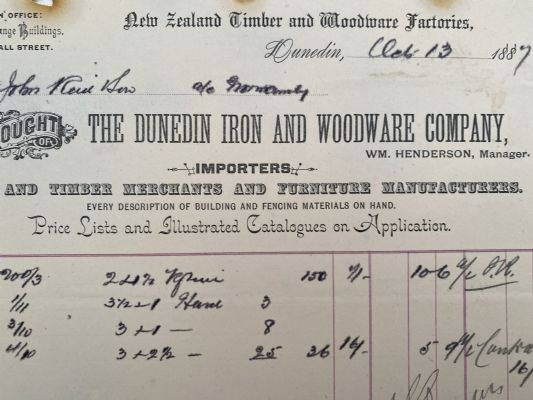 N OFFICE:
nge Buildings,
ALL STREET.
New Zealand Timber and Woodware Factories,
Dunedin, Oct 13 1887
John Reid & Son a/c Normanby
OUGHT OF THE DUNEDIN IRON AND WOODWARE COMPANY,
WM. HENDERSON, Manager.
IMPORTERS
AND TIMBER MERCHANTS AND FURNITURE MANUFACTURERS.
EVERY DESCRIPTION OF BUILDING AND FENCING MATERIALS ON HAND.
Price Lists and Illustrated Catalogues on Application.
150 7/- 10 6
1/11 3½ × 1 3
3/10 3 × 1 — 8
4/10 3 × 2½ — 25 36 16/- 5 9
16/